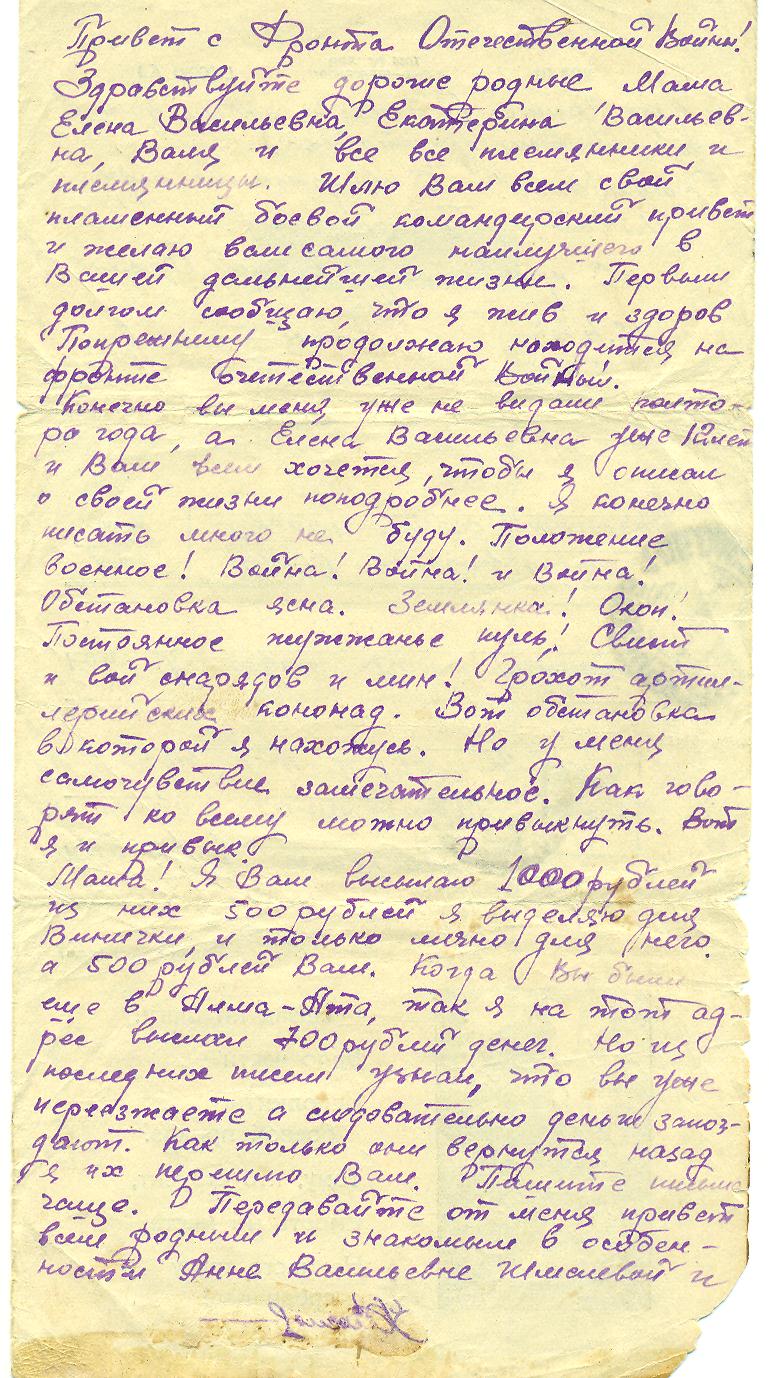 Привет с Фронта Отечественной Войны!
Здравствуйте дорогие родные Мама
Елена Васильевна, Екатерина Васильев-
на, Валя и все все племянники и
племянницы. Шлю Вам всем свой
пламенный боевой командирский привет
и желаю вам самого наилучшего в
Вашей дальнейшей жизни. Первым
долгом сообщаю, что я жив и здоров
Попрежнему продолжаю находится на
фронте отечественной Войны.
Конечно вы меня уже не видали полто-
ра года, а Елена Васильевна уже 12 лет
и Вам всем хочется, чтобы я описал
о своей жизни поподробнее. Я конечно
писать много не буду. Положение
военное! Война! Война! и Война!
Обстановка ясна. Землянка! Окоп!
Постоянное жужжанье пуль! Свист
и вой снарядов и мин! Грохот артил-
лерийских кононад. Вот обстановка
в которой я нахожусь. Но у меня
самочувствие замечательное. Как гово-
рят ко всему можно привыкнуть. Вот
я и привык.
Мама! Я Вам высылаю 1000 рублей
из них 500 рублей я выделяю для
и только лично для него.
а 500 рублей Вам. Когда Вы были
еще в Алма-Ата, так я на тот ад-
рес выслал 700 рублей денег. Но из
последних писем узнал, что вы уже
переезжаете а следовательно деньги запоз-
дают. Как только они вернутся назад
я их перешлю Вам. Пишите письма
чаще. Передавайте от меня привет
всем родным и знакомым в особен-
ности Анне Васильевне и